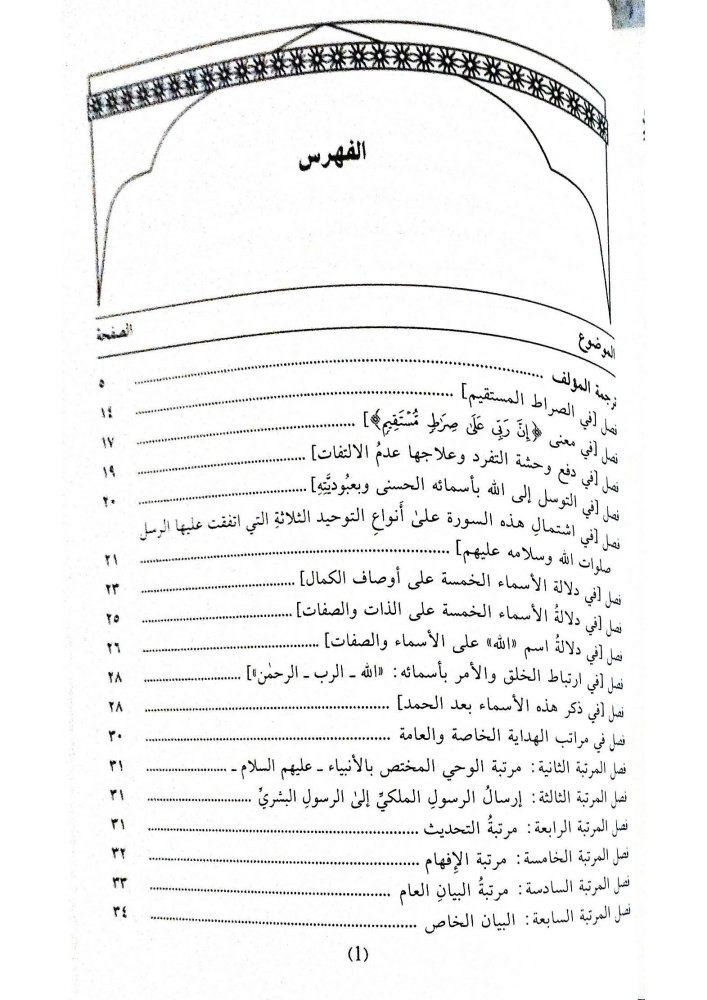 الفهرس
الموضوع الصفحة
ترجمة المؤلف ........ ٥
فصل [في الصراط المستقيم] ........ ١٤
فصل [في معنى ﴿إِنَّ رَبِّي عَلَىٰ صِرَٰطٍ مُّسْتَقِيمٍ﴾] ........ ١٧
فصل [في دفع وحشة التفرد وعلاجها عدمُ الالتفات] ........ ١٩
فصل [في التوسل إلى الله بأسمائه الحسنى وبعبُوديَّتِهِ] ........ ٢٠
فصل [في اشتمالِ هذه السورة علىٰ أَنواعِ التوحيد الثلاثةِ التي اتفقت عليها الرسل
صلوات الله وسلامه عليهم] ........ ٢١
فصل [في دلالة الأسماء الخمسة على أوصاف الكمال] ........ ٢٣
فصل [في دلالةُ الأسماء الخمسة على الذات والصفات] ........ ٢٥
فصل [في دلالةُ اسم «الله» على الأسماء والصفات] ........ ٢٦
فصل [في ارتباط الخلق والأمر بأسمائه: «الله ـ الرب ـ الرحمٰن»] ........ ٢٨
فصل [في ذكر هذه الأسماء بعد الحمد] ........ ٢٨
فصل في مراتب الهداية الخاصة والعامة ........ ٣٠
فصل المرتبة الثانية: مرتبة الوحي المختص بالأنبياء ـ عليهم السلام ـ ........ ٣١
فصل المرتبة الثالثة: إرسالُ الرسولِ الملكيِّ إلىٰ الرسولِ البشريِّ ........ ٣١
فصل المرتبة الرابعة: مرتبةُ التحديث ........ ٣١
فصل المرتبة الخامسة: مرتبة الإِفهام ........ ٣٢
فصل المرتبة السادسة: مرتبةُ البيانِ العام ........ ٣٣
فصل المرتبة السابعة: البيان الخاص ........ ٣٤
(1)